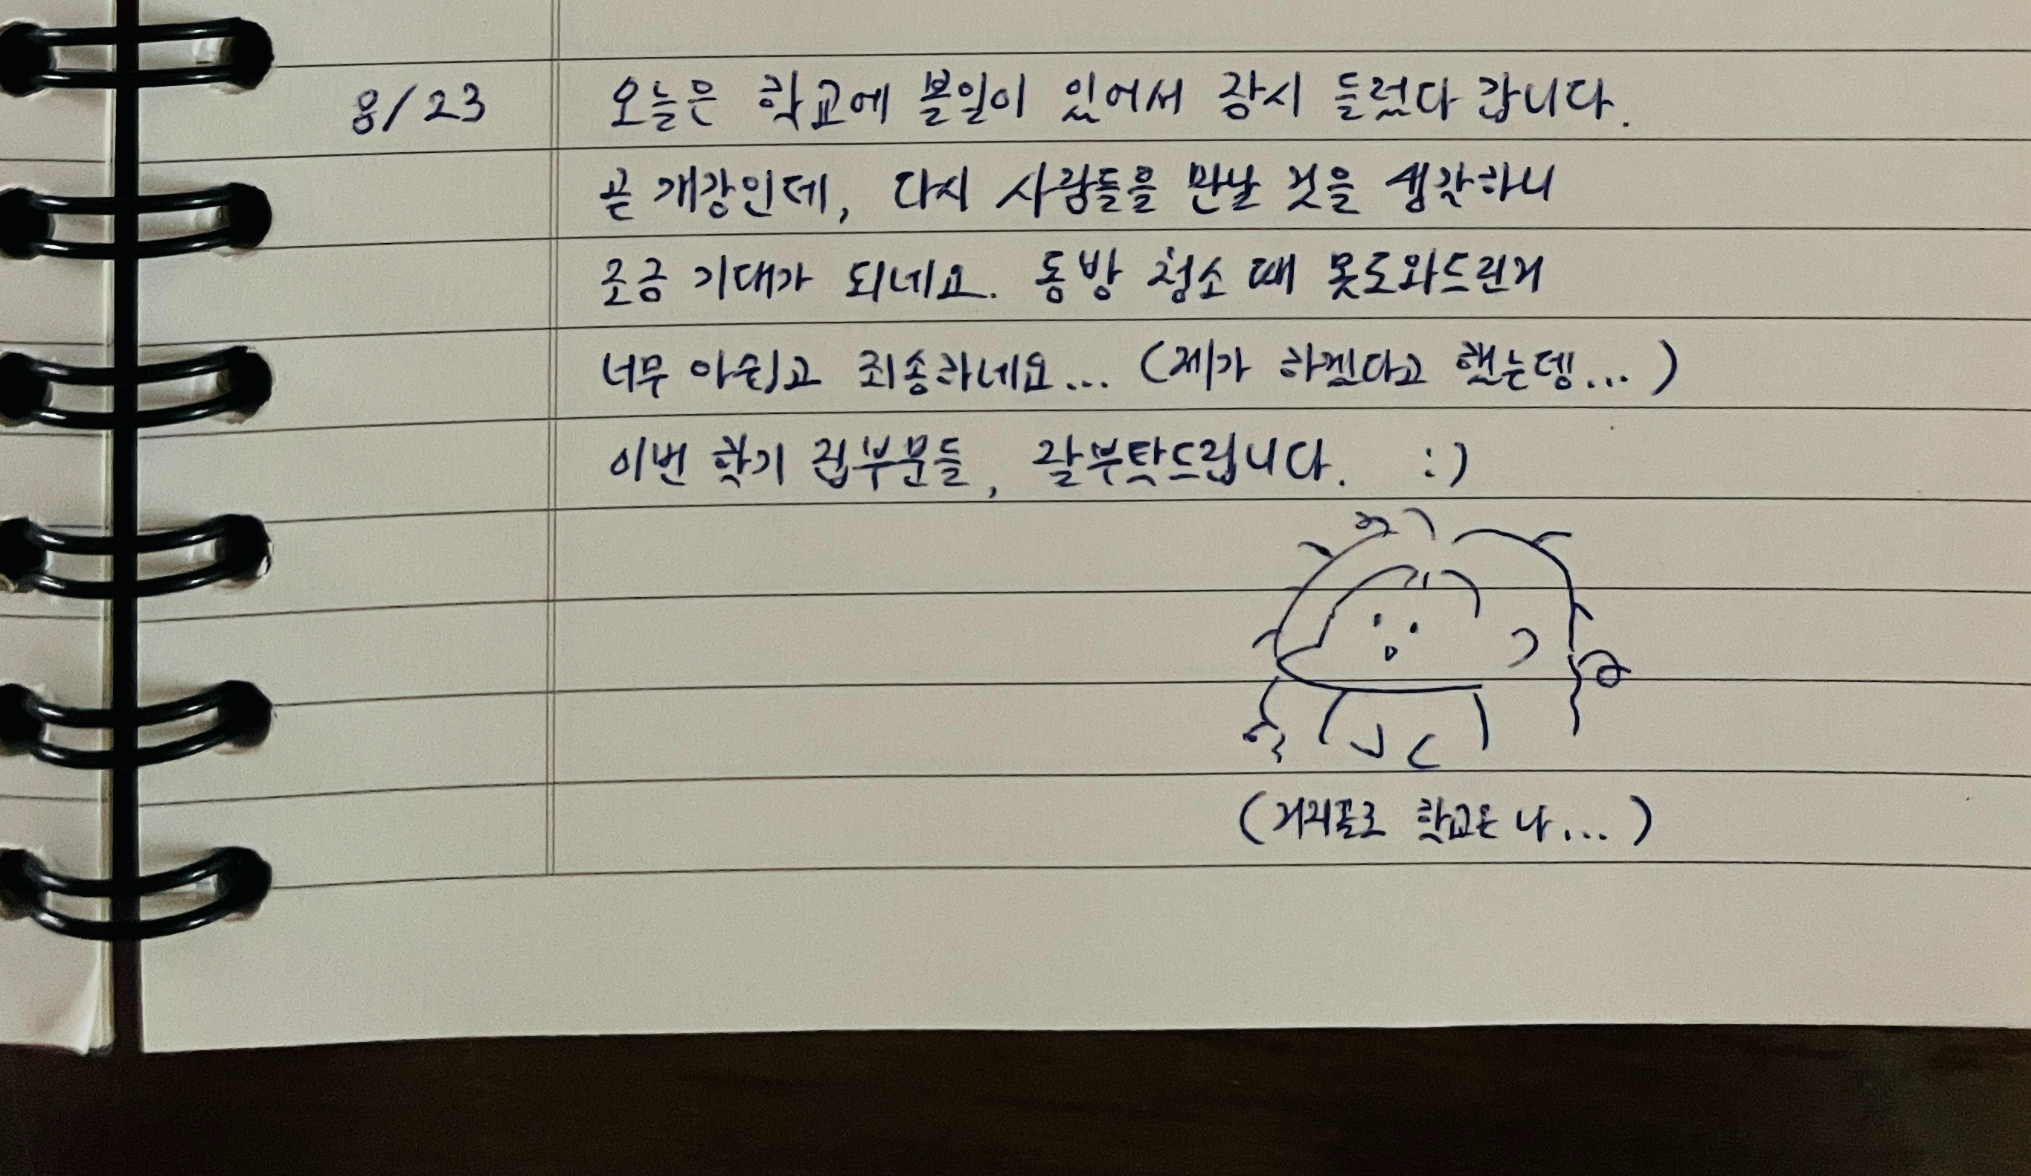 8/23 오늘은 학교에 볼일이 있어서 잠시 들렀다 갑니다.
곧 개강인데, 다시 사람들을 만날 것을 생각하니
조금 기대가 되네요. 동방 청소 때 못도와드린거
너무 아쉽고 죄송하네요... (제가 하겠다고 했는뎅...)
이번 학기 집부분들, 잘부탁드립니다. :)
(거지꼴로 학교온 나...)